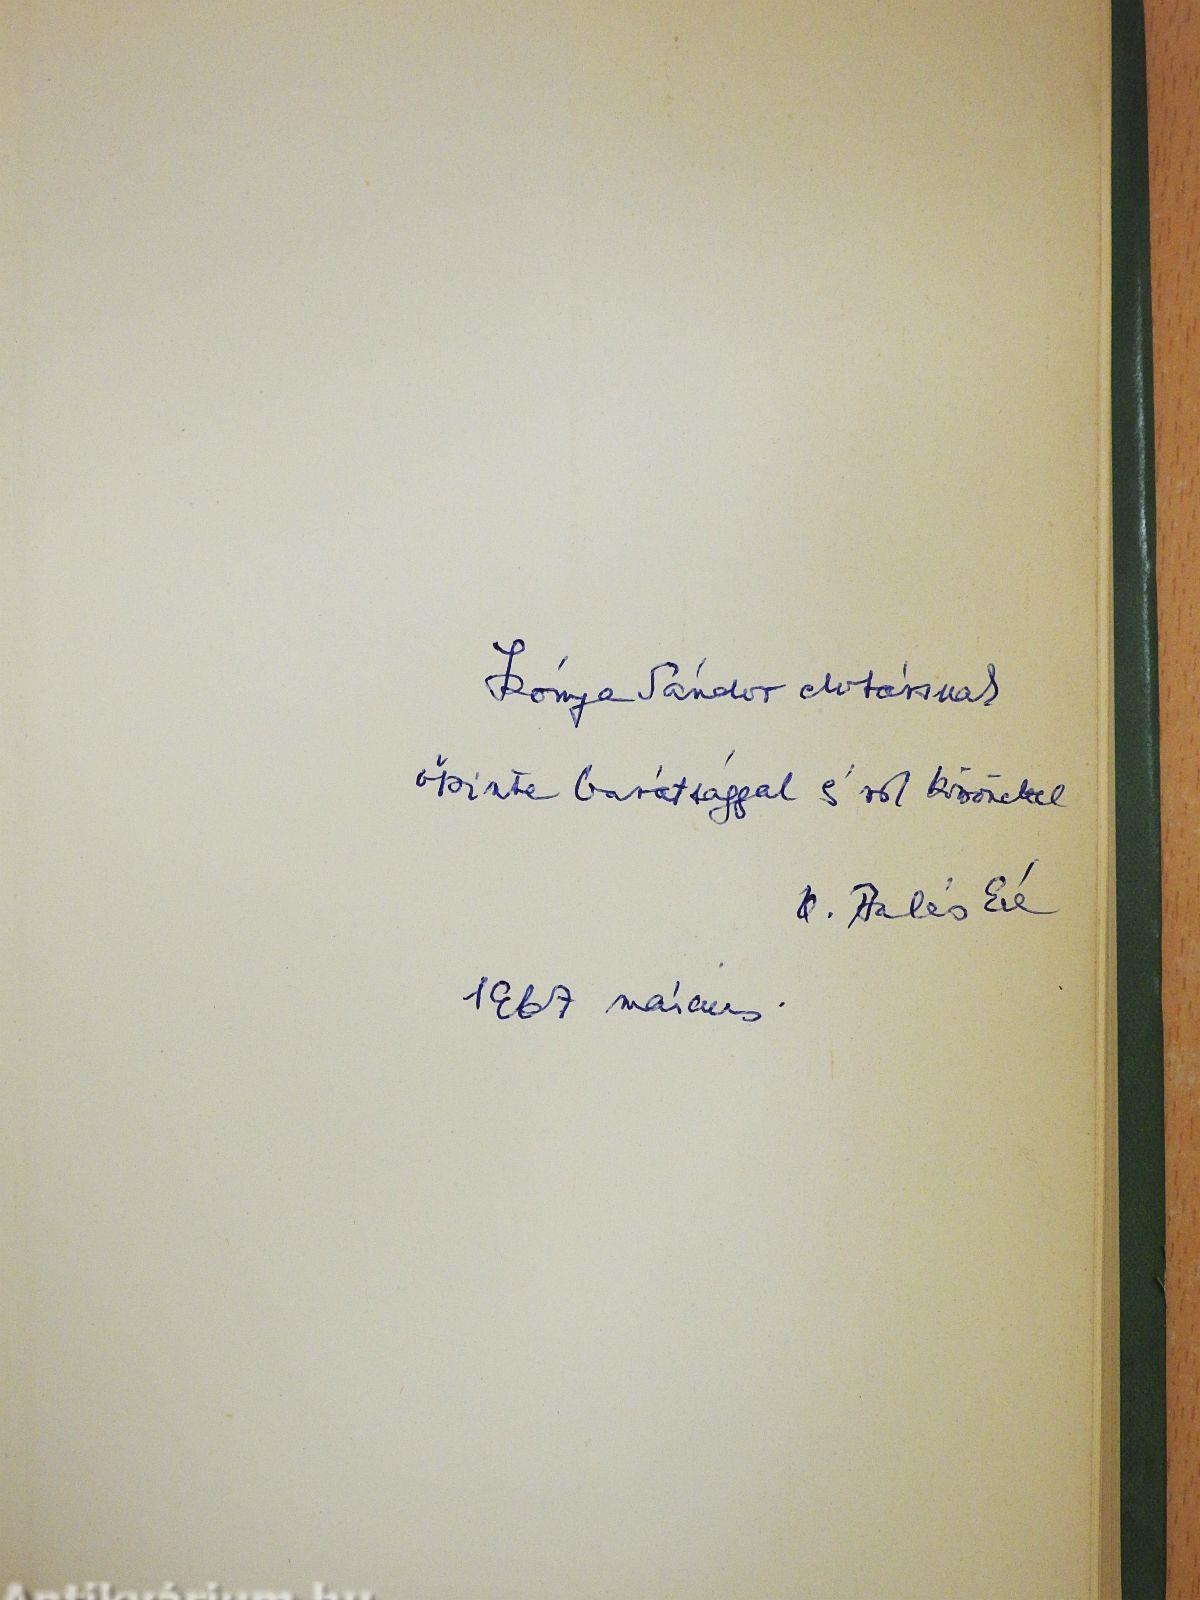 Kónya Sándor elvtársnak
őszinte barátsággal és sok köszönettel
V. Balás Éva
1967 március.
Antikvárium.hu